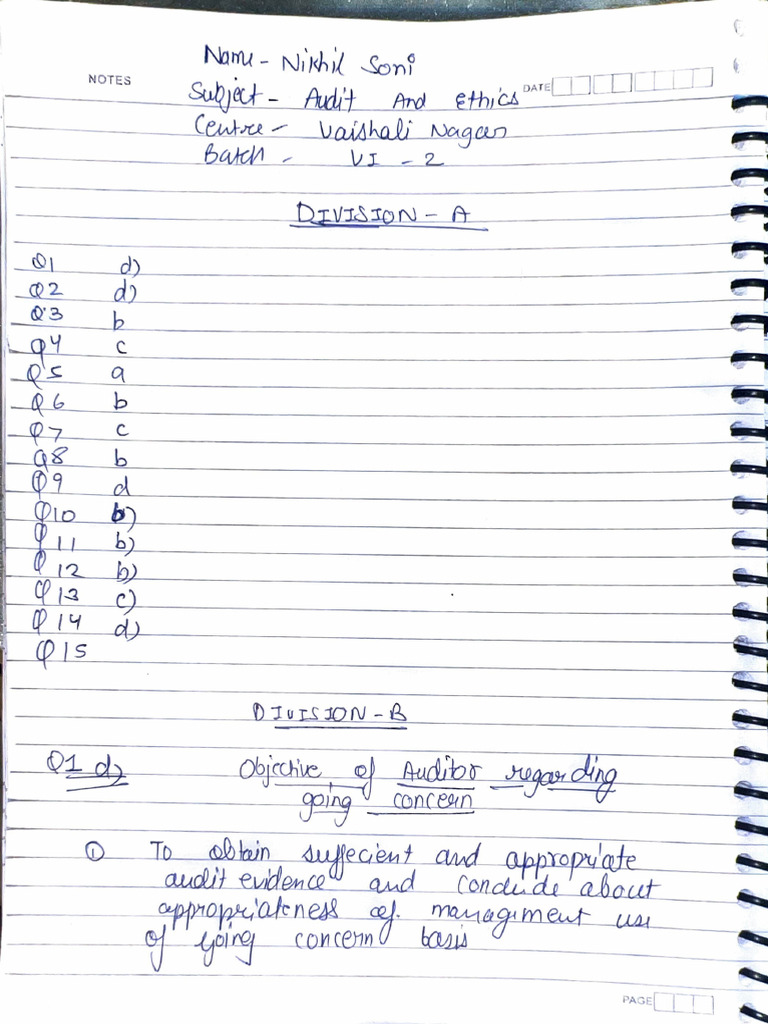 Name - Nikhil Soni
NOTES
Subject - Audit And Ethics
DATE
Centre - Vaishali Nagar
Batch - VI - 2
DIVISION - A
Q1 d)
Q2 d)
Q3 b
Q4 c
Q5 a
Q6 b
Q7 c
Q8 b
Q9 d
Q10 b)
Q11 b)
Q12 b)
Q13 c)
Q14 d)
Q15
DIVISION - B
Q1 d) Objective of Auditor regarding
going concern
① To obtain suffecient and appropriate
audit evidence and conclude about
appropriatness of management use
of going concern basis
PAGE